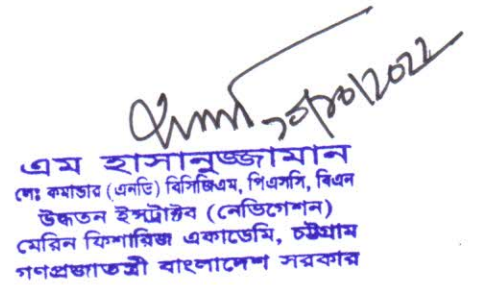 ১০/১০/2022
এম হাসানুজ্জামান
লেঃ কমান্ডার (এনডি) বিসিজিএম, পিএসসি, বিএন
উদ্ধতন ইন্সট্রাক্টর (নেভিগেশন)
মেরিন ফিশারিজ একাডেমি, চট্টগ্রাম
গণপ্রজাতন্ত্রী বাংলাদেশ সরকার